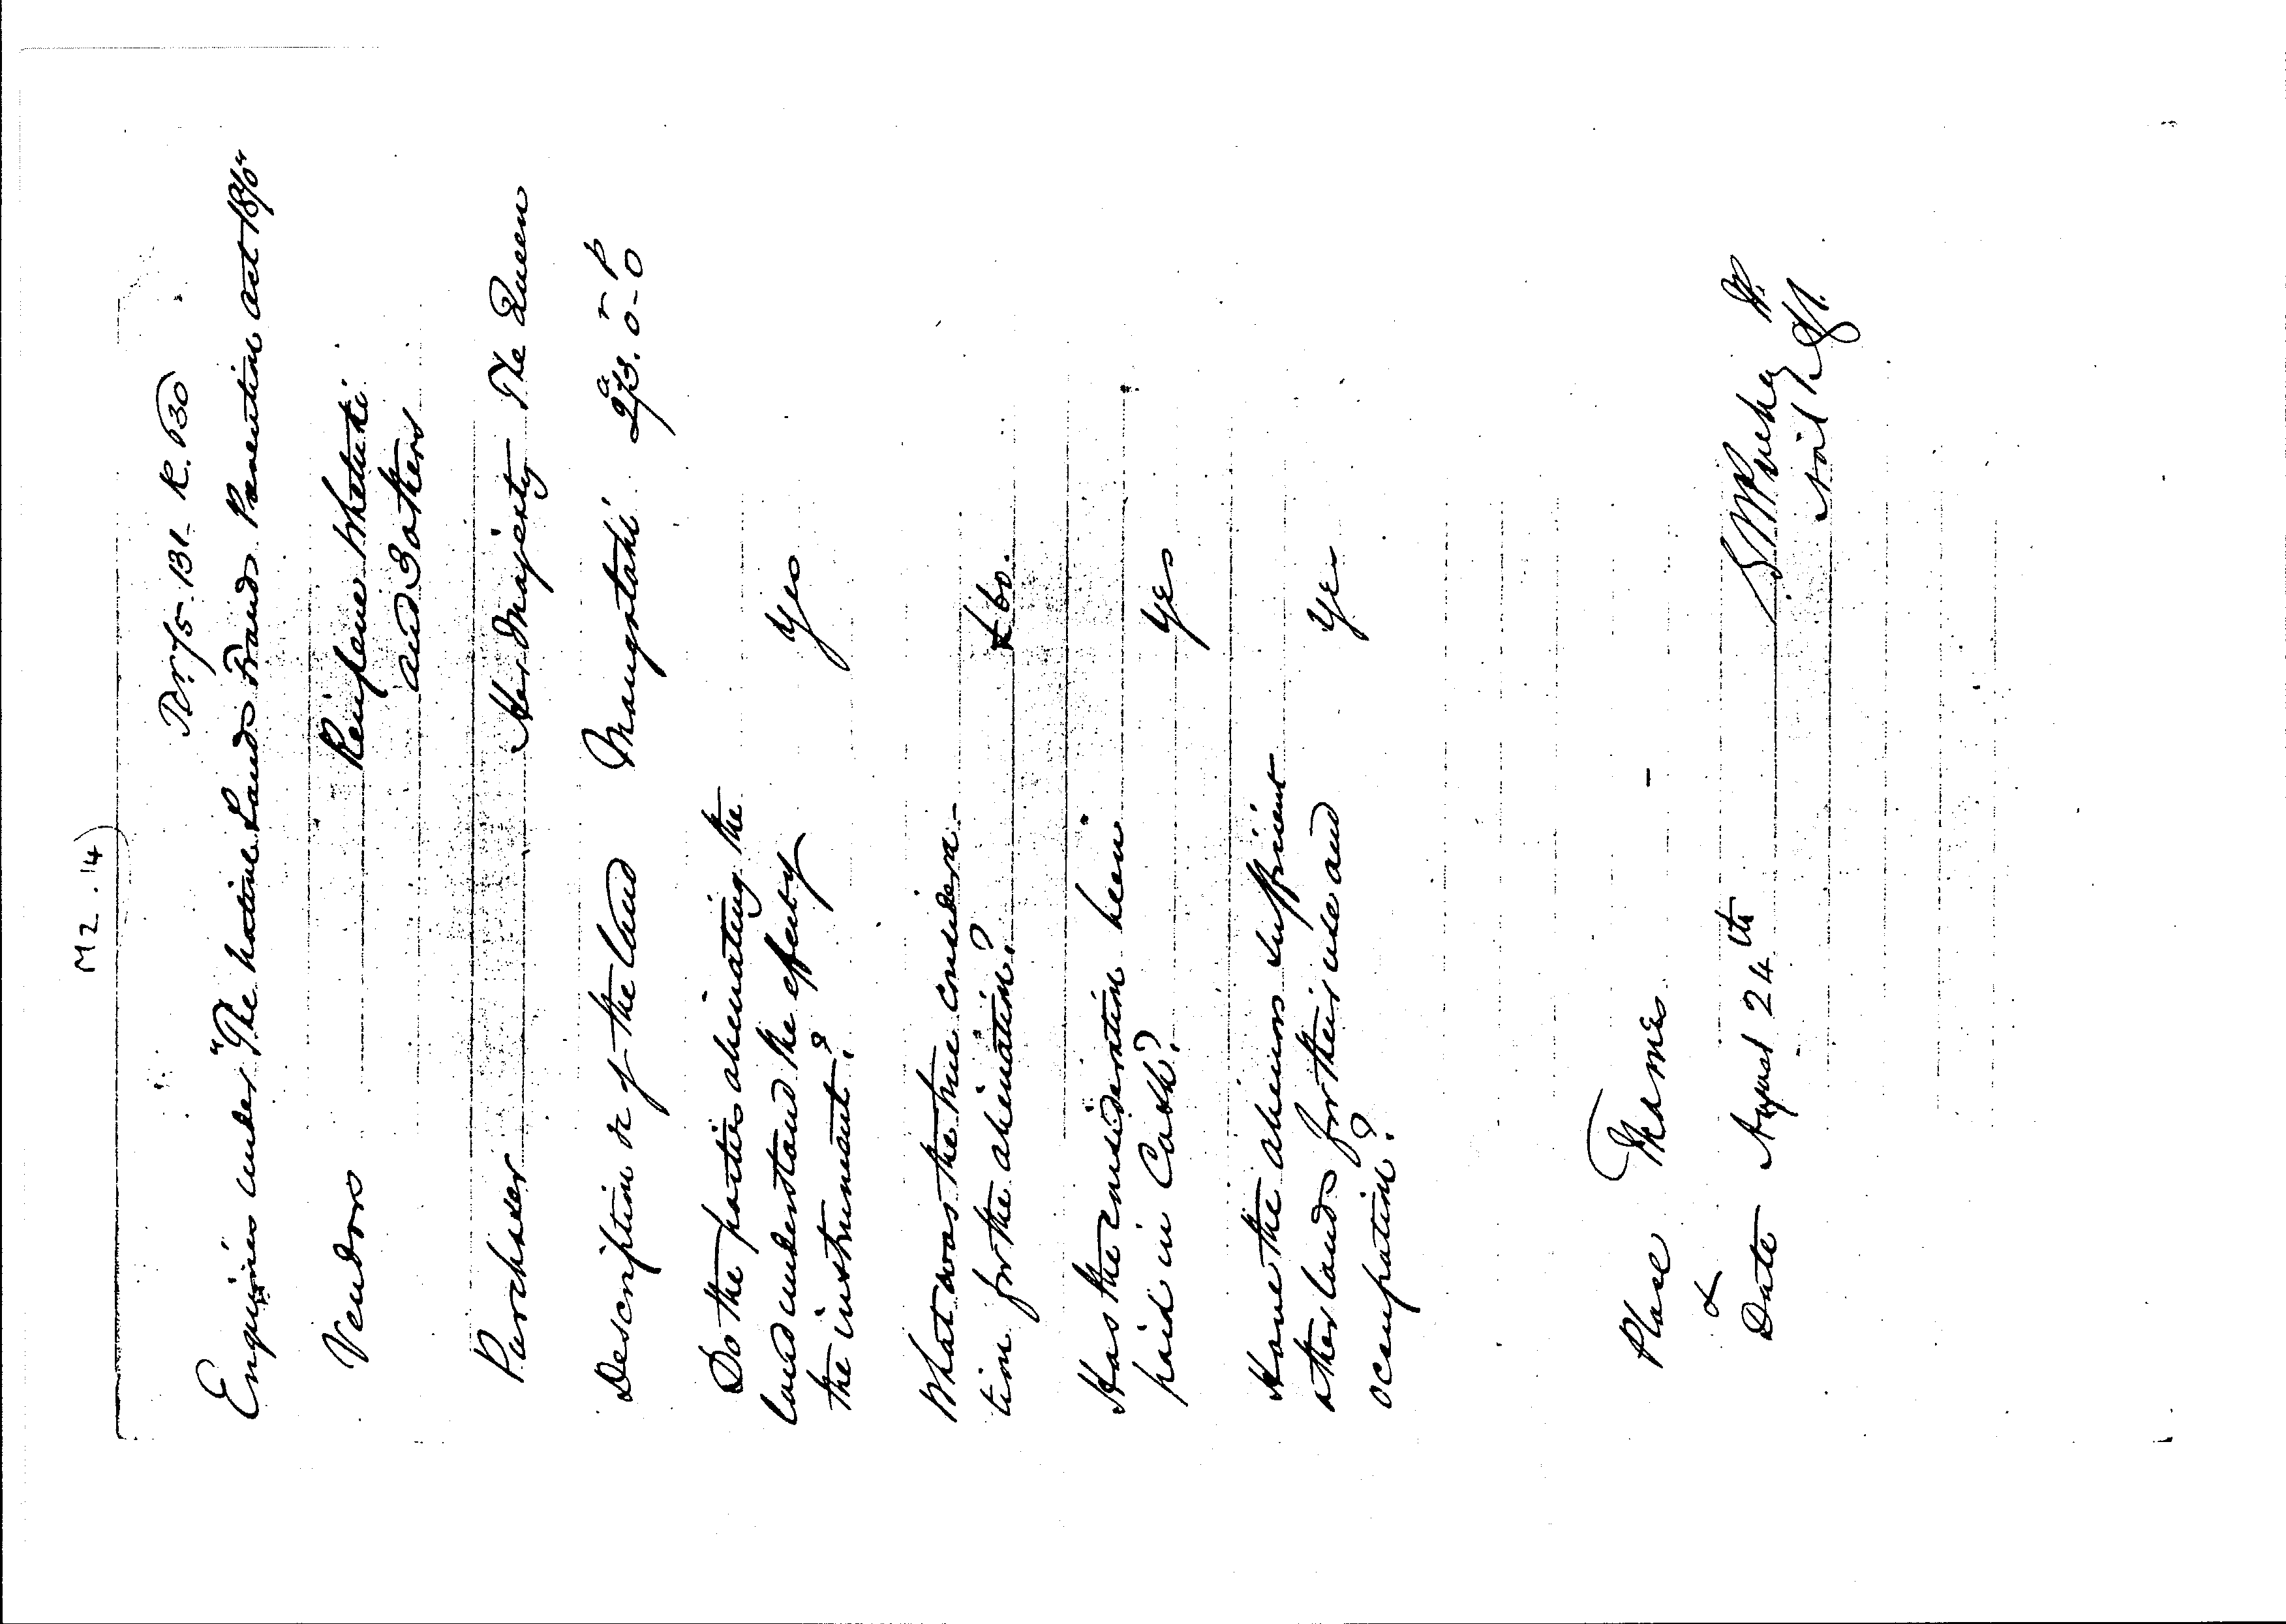 M2.14)
131 R. 130
Enquiries under "The Native Lands Frauds Prevention Act 1870"
Vendors
and 3 others
Purchaser Her Majesty The Queen
Description &c of the land Maugatahi a r p
0 - 0
Do the parties alienating the
land understand the effect of
the instrument? Yes
What was the true considera-
tion for the alienation? £60.
Has the consideration been
paid in Cash? Yes
Have the alienors sufficient
other lands for their use and
occupation? Yes
Place Thames -
&
Date August 24th